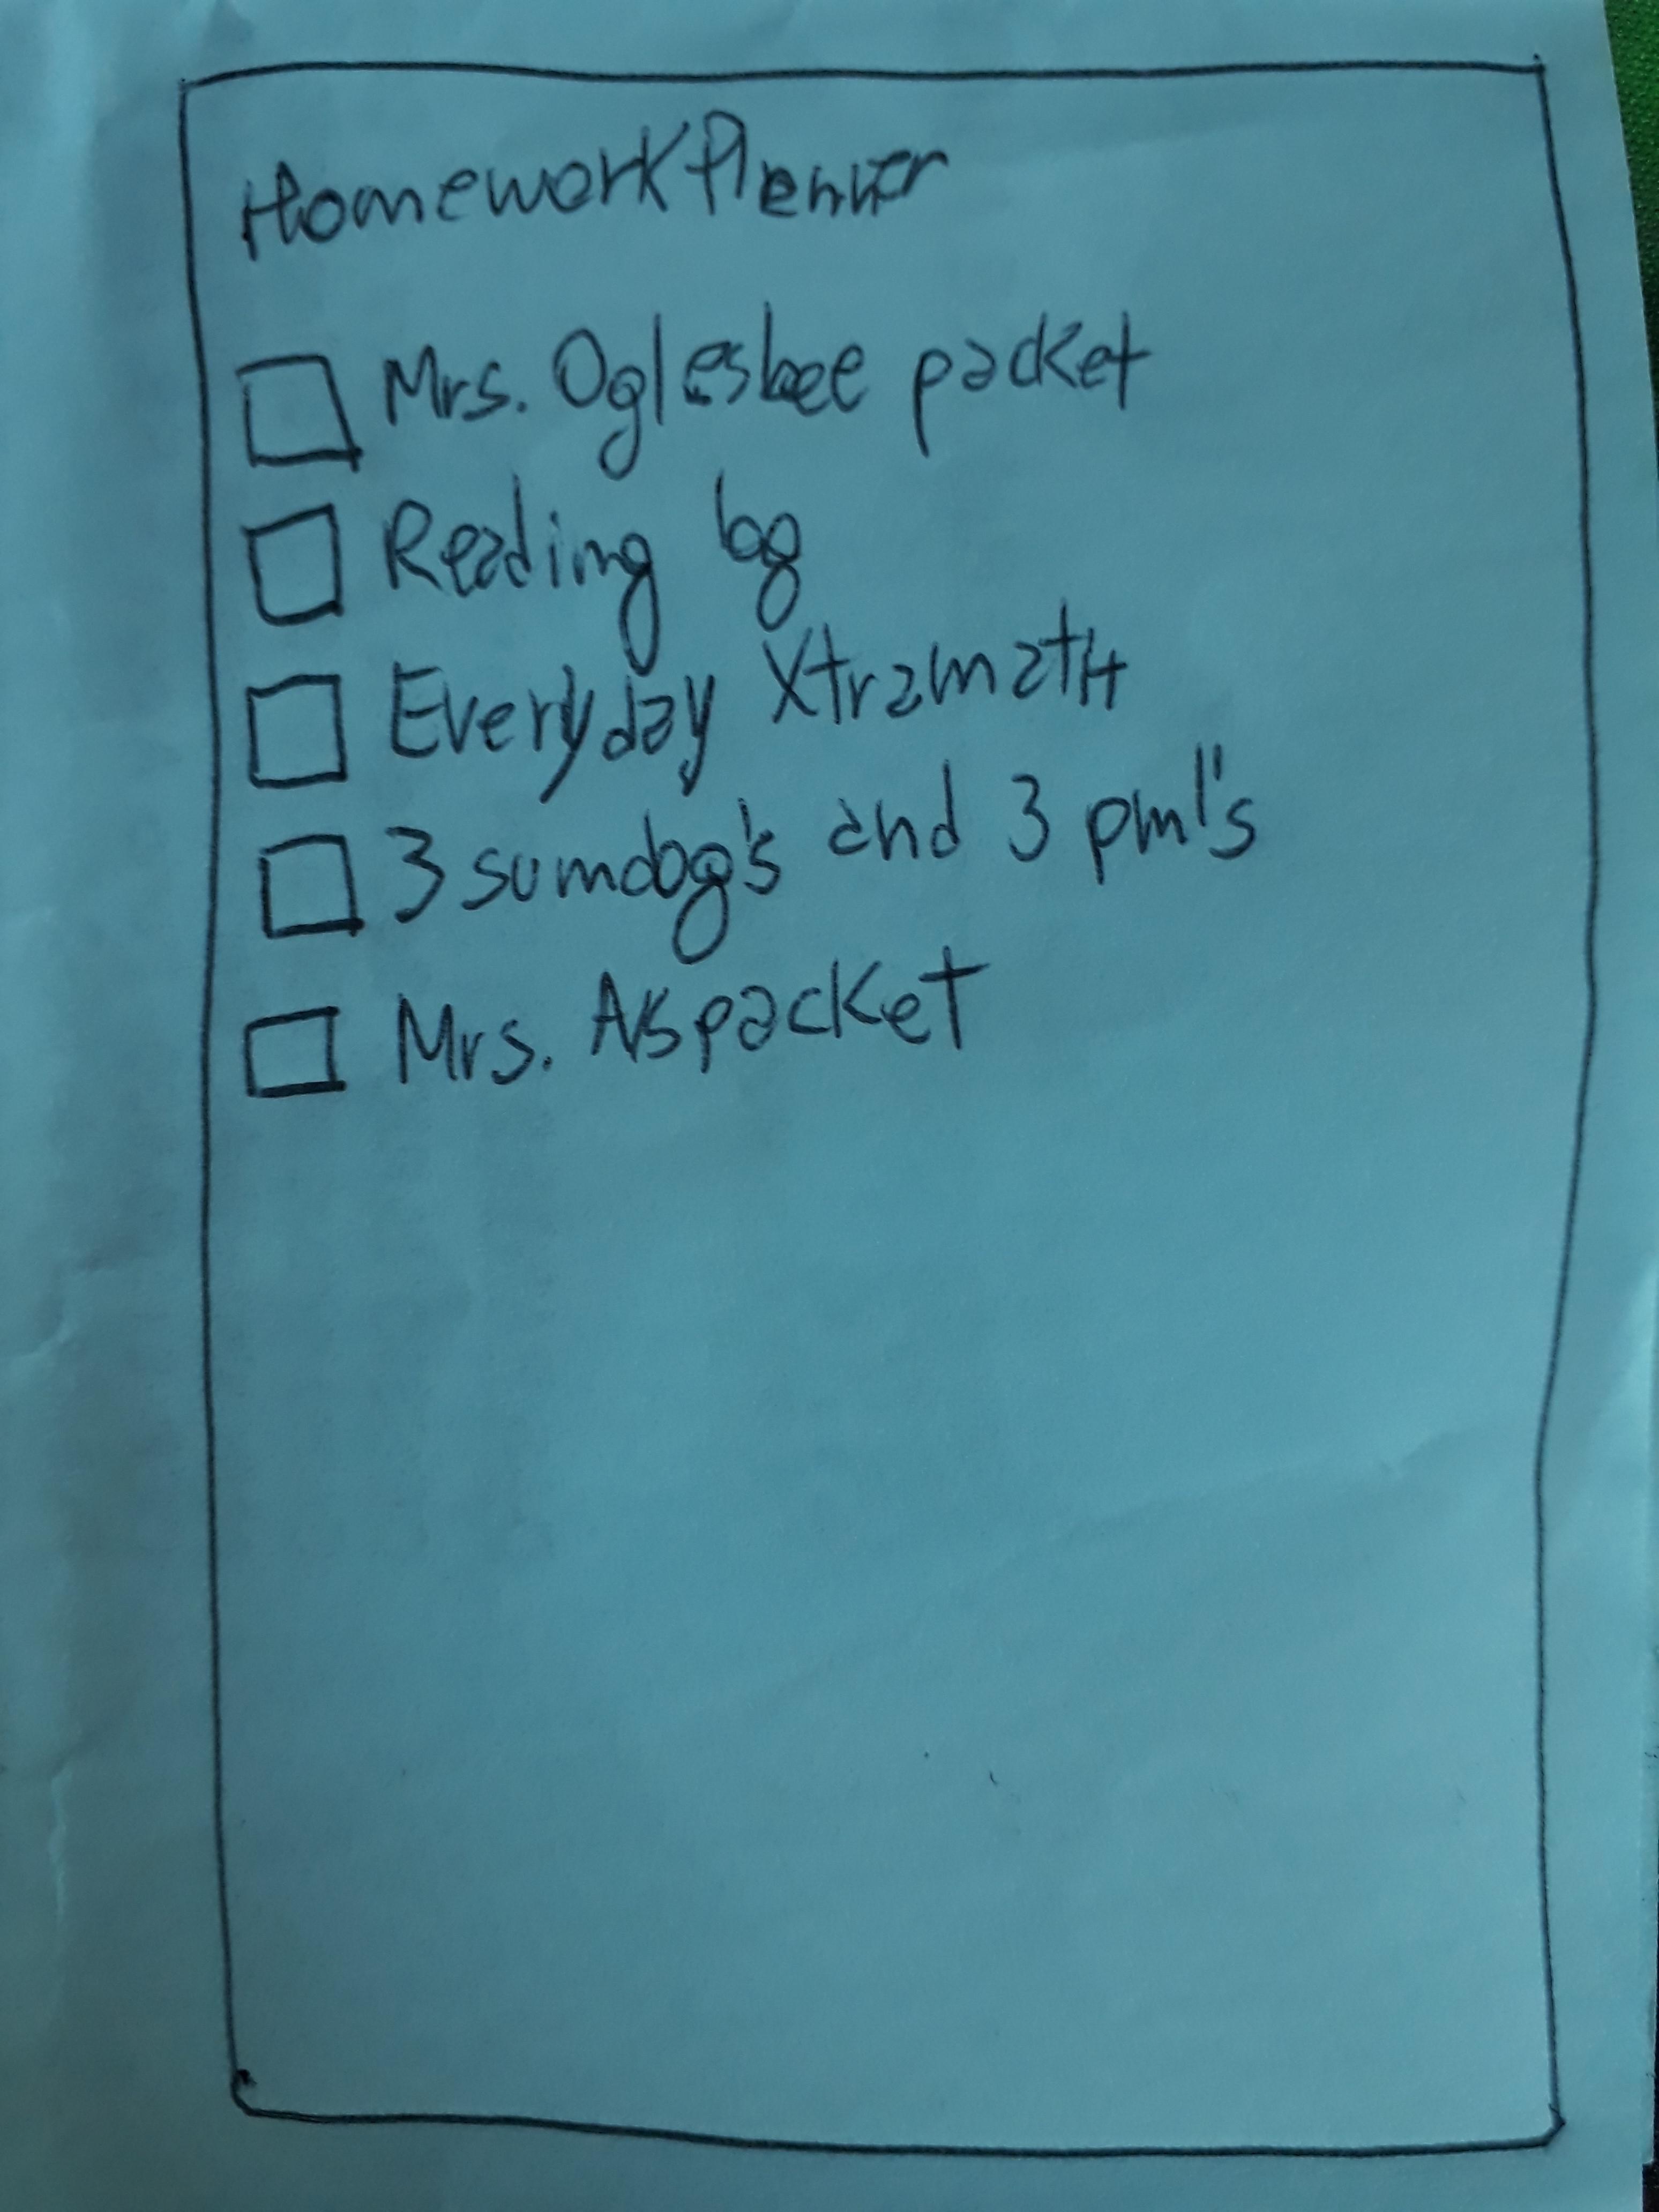 Homework Planner
Mrs. Oglesbee packet
Reading log
Everyday Xtramath
3 sumdog's and 3 pml's
Mrs. A's packet